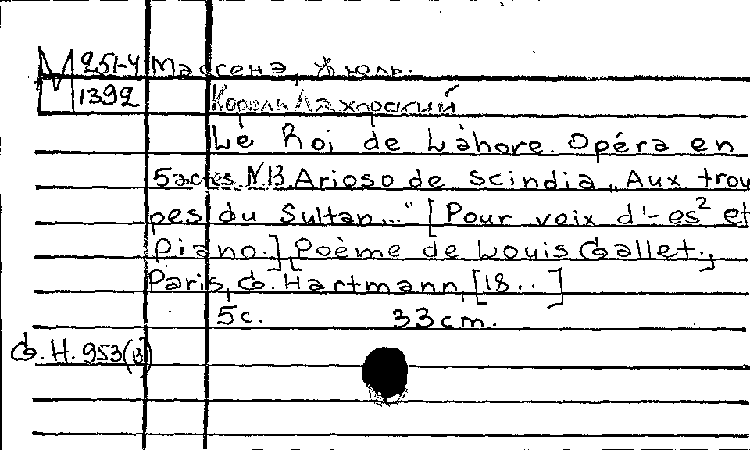 М 251-4 Массенэ, Жюль.
1392 Король Лахорский
Le Roi de Lahore. Opéra en
5 actes. N.13. Arioso de Scindia „Aux trou
pes du Sultan..." [Pour voix d'-es² et
piano.] [Poème de Louis Gallet.]
Paris, G. Hartmann, [18..]
5c. 33cm.
G. H. 953(13)